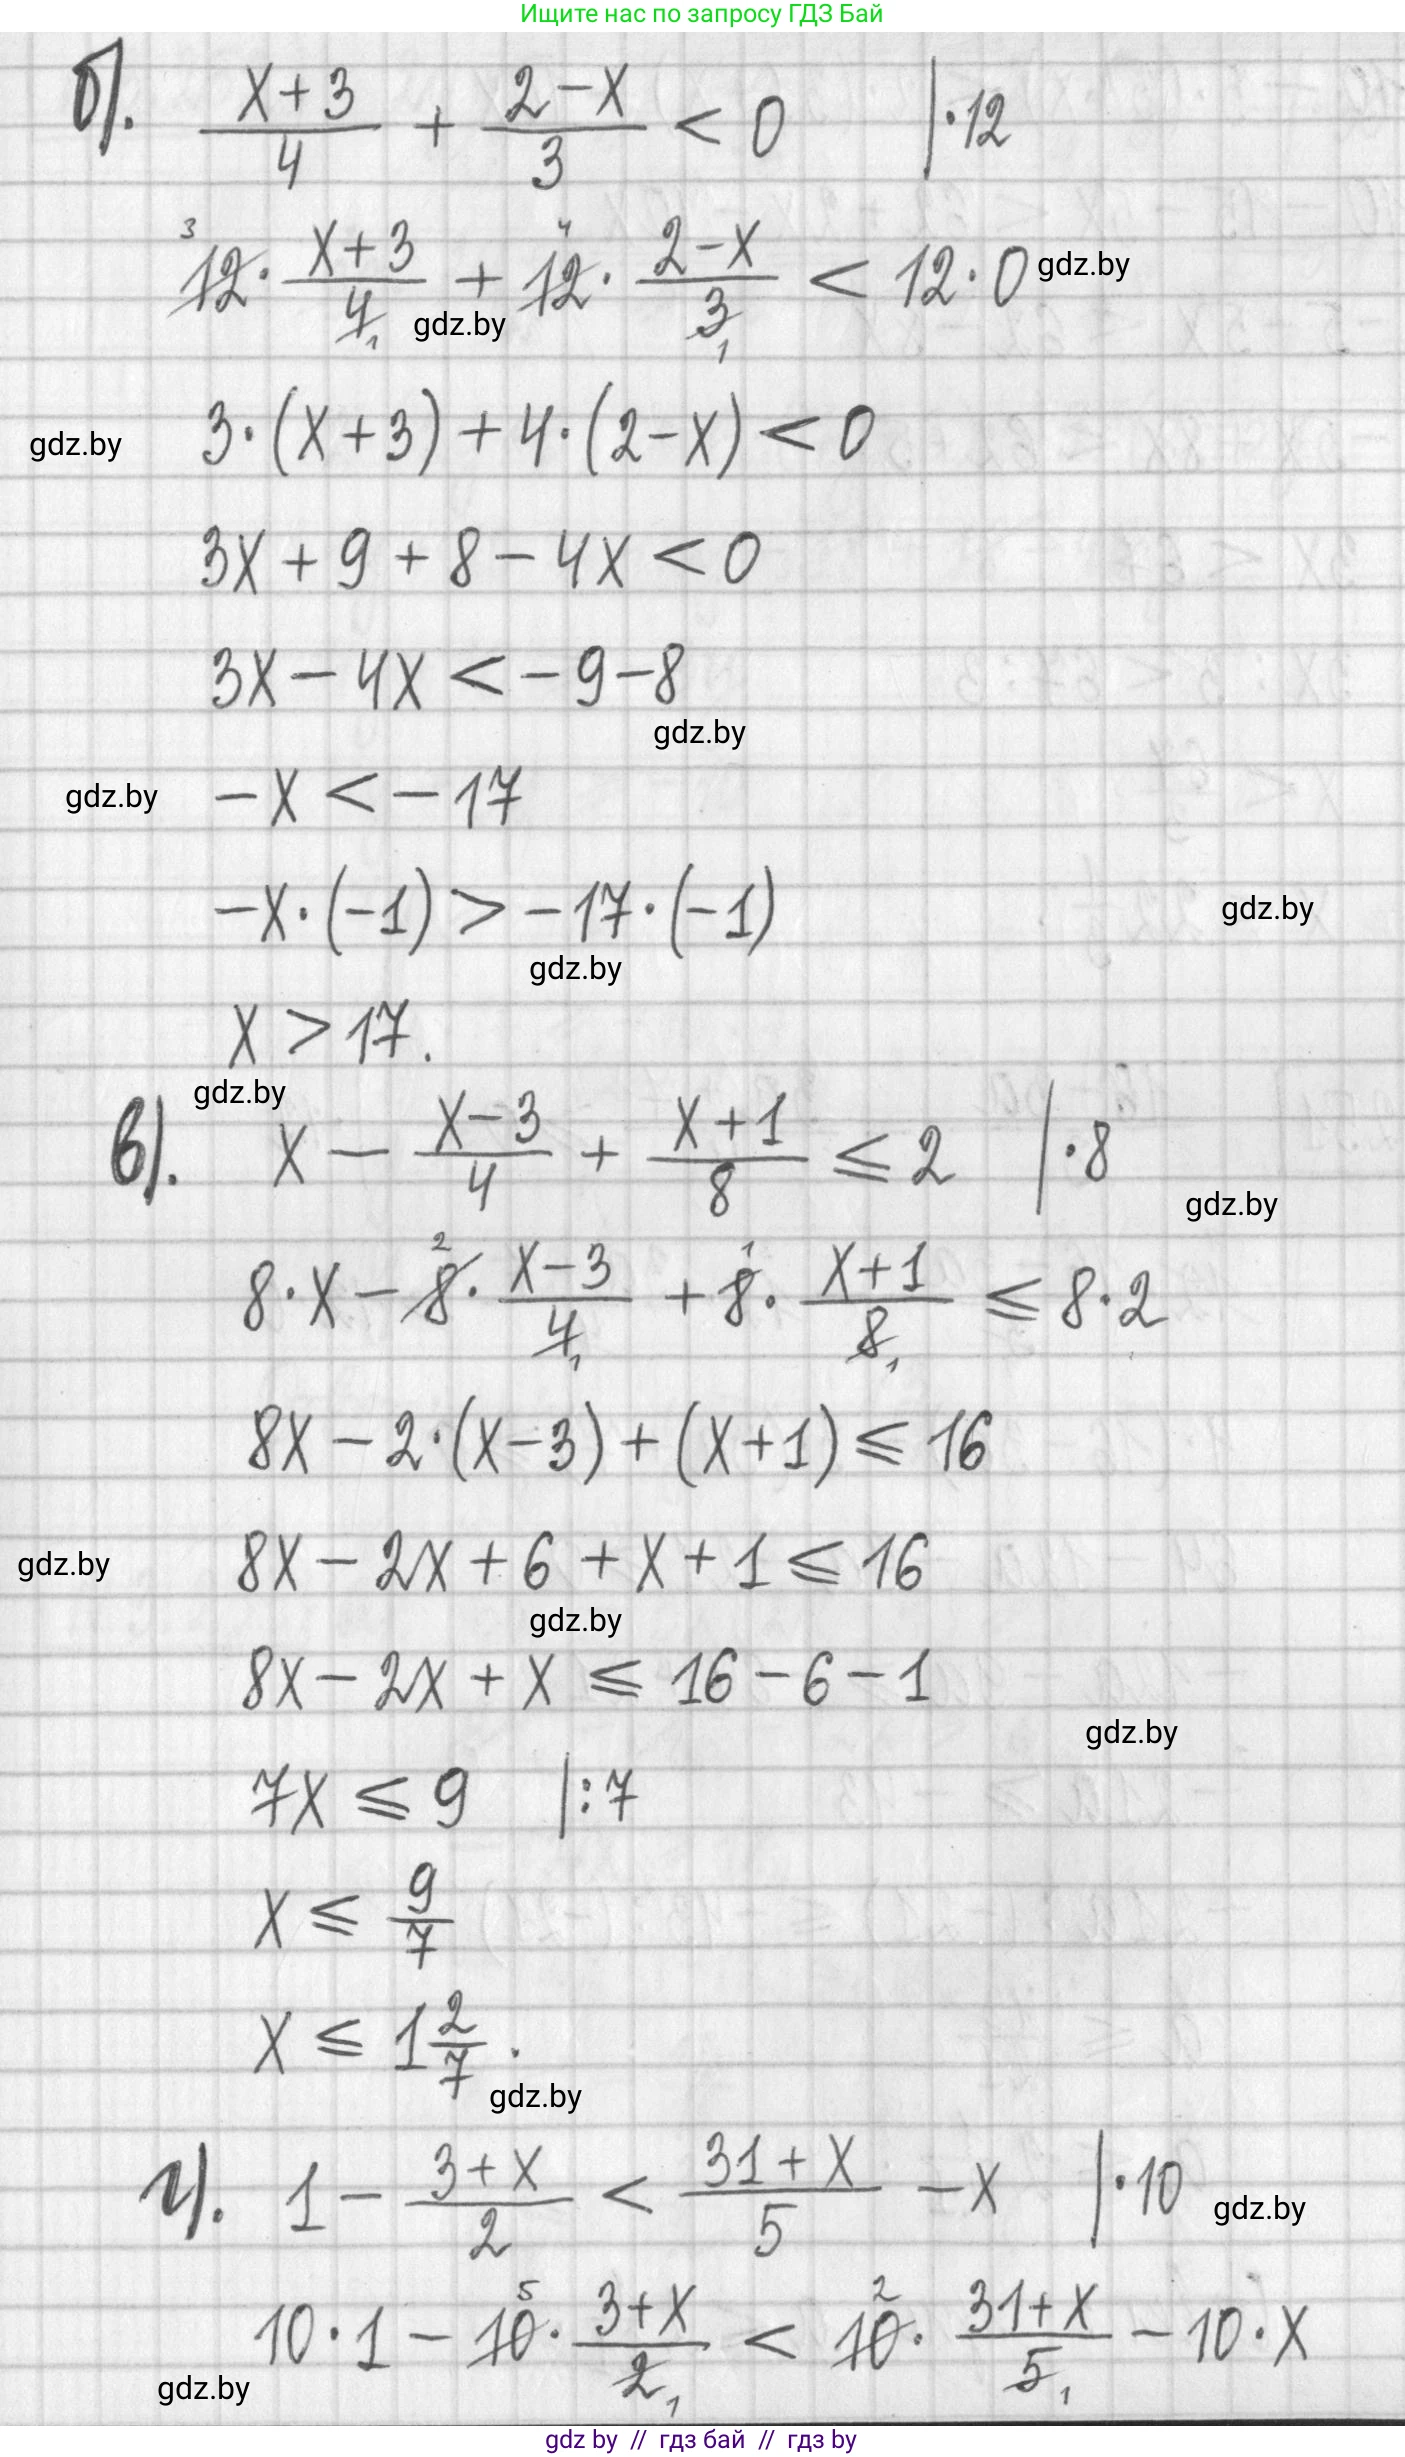 Ищите нас по запросу ГДЗ Бай
б). (x+3)/4 + (2-x)/3 < 0 |·12
3 4
12·(x+3)/4 + 12·(2-x)/3 < 12·0 gdz.by
1 gdz.by 1
gdz.by 3·(x+3)+4·(2-x)<0
3x+9+8-4x<0
3x-4x<-9-8
gdz.by
gdz.by -x<-17
-x·(-1)>-17·(-1) gdz.by
gdz.by
x>17.
gdz.by
в). x - (x-3)/4 + (x+1)/8 ≤ 2 |·8
gdz.by
2 1
8·x - 8·(x-3)/4 + 8·(x+1)/8 ≤ 8·2
1 1
8x-2·(x-3)+(x+1)≤16
gdz.by 8x-2x+6+x+1≤16
gdz.by
8x-2x+x≤16-6-1
gdz.by
7x≤9 |:7
x≤9/7
x≤1 2/7.
gdz.by
г). 1 - (3+x)/2 < (31+x)/5 - x |·10 gdz.by
5 2
10·1 - 10·(3+x)/2 < 10·(31+x)/5 - 10·x
gdz.by 1 1
gdz by // гдз бай // гдз by